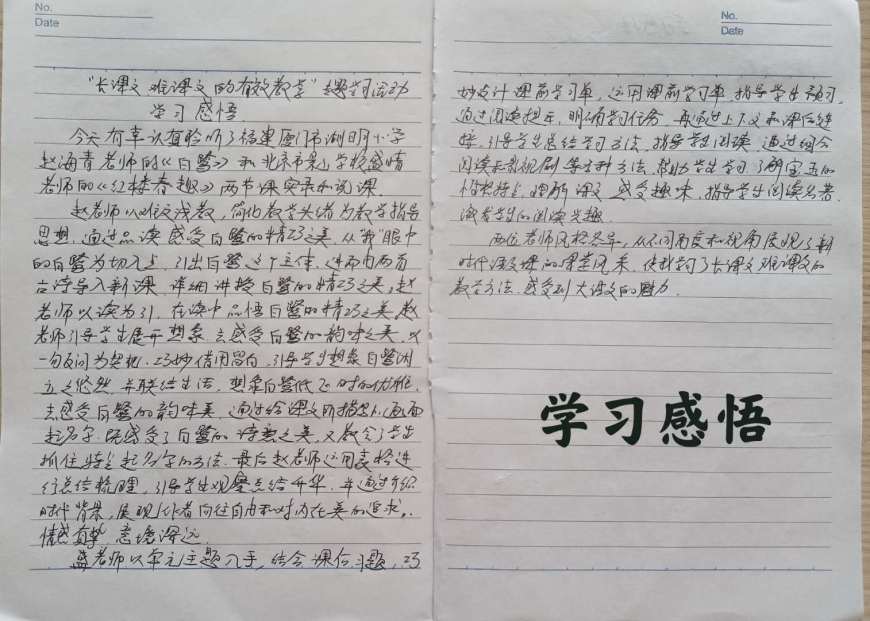 No.
Date
"长课文难课文的有效教学"专题学习活动
学习感悟
今天有幸认真聆听了福建厦门市湖明小学
赵海青老师的《白鹭》和北京市 学校盛情
老师的《红楼春趣》两节课实录和说课。
赵老师以 文浅教，简化教学头绪为教学指导
思想，通过品读感受白鹭的精巧之美，从"我"眼中
的白鹭为切入点，引出白鹭这个主体，进而由两首
古诗导入新课，详细讲授白鹭的精巧之美，赵
老师以读为引，在读中品悟白鹭的精巧之美，赵
老师引导学生展开想象，去感受白鹭的韵味之美，以
一句反问为契机，巧妙借用留白，引导学生想象白鹭闲
立之悠然，并联结生活，想象白鹭低飞时的优雅，
去感受白鹭的韵味美，通过给课文所描绘的画面
起名字，既感受了白鹭的诗意之美，又教会了学生
抓住特点起名字的方法。最后赵老师运用表格进
行总结梳理，引导学生观星点结升华，并通过介绍
时代背景，展现作者向往自由和对内在美的追求，
情感真挚，意境深远。
盛老师以单元主题入手，结合课后习题，巧
No.
Date
妙设计课前学习单，运用课前学习单，指导学生预习，
通过阅读提示，明确学习任务，再通过上下文和课后链
接，引导学生总结学习方法，指导学生阅读，通过组合
阅读和影视剧等多种方法，帮助学生学习了解宝玉的
性格特点，理解课文，感受趣味，指导学生阅读名著，
激发学生的阅读兴趣。
两位老师风格各异，从不同角度和视角展现了新
时代语文课的课堂风采，使我学习了长课文难课文的
教学方法，感受到大语文的魅力。
学习感悟